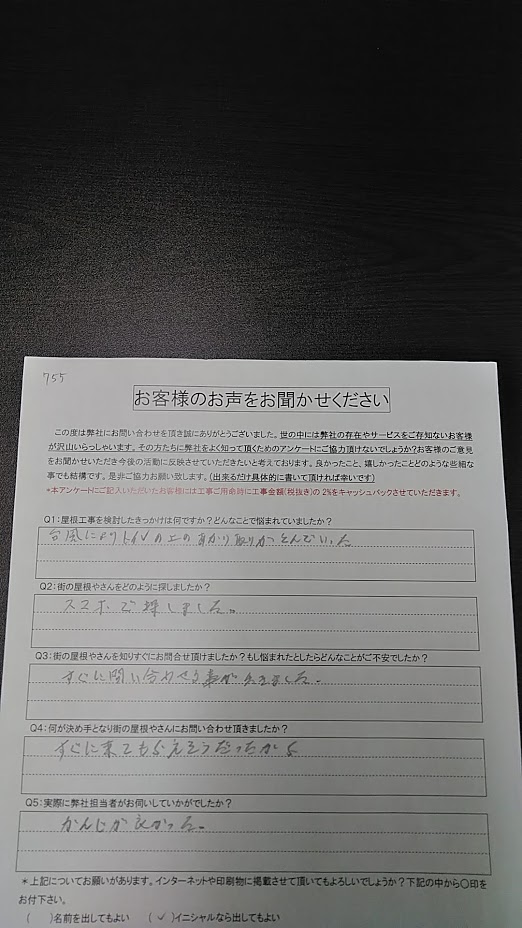 755
お客様のお声をお聞かせください
この度は弊社にお問い合わせを頂き誠にありがとうございました。世の中には弊社の存在やサービスをご存知ないお客様
が沢山いらっしゃいます。その方たちに弊社をよく知って頂くためのアンケートにご協力頂けないでしょうか?お客様のご意見
をお聞かせいただき今後の活動に反映させていただきたいと考えております。良かったこと、嬉しかったことどのような些細な
事でも結構です。是非ご協力お願い致します。(出来るだけ具体的に書いて頂ければ幸いです)
*本アンケートにご記入いただいたお客様には工事ご用命時に工事金額(税抜き)の 2%をキャッシュバックさせていただきます。
Q1:屋根工事を検討したきっかけは何ですか?どんなことで悩まれていましたか?
台風によりトイレの上のあかり取りがとんでいった
Q2:街の屋根やさんをどのように探しましたか?
スマホで探しました。
Q3:街の屋根やさんを知りすぐにお問合せ頂けましたか?もし悩まれたとしたらどんなことがご不安でしたか?
すぐに問い合わせる事が出来ました。
Q4:何が決め手となり街の屋根やさんにお問い合わせ頂きましたか?
すぐに来てもらえそうだったから
Q5:実際に弊社担当者がお伺いしていかがでしたか?
かんじが良かった。
*上記についてお願いがあります。インターネットや印刷物に掲載させて頂いてもよろしいでしょうか?下記の中から〇印を
お付下さい。
( )名前を出してもよい (✓)イニシャルなら出してもよい